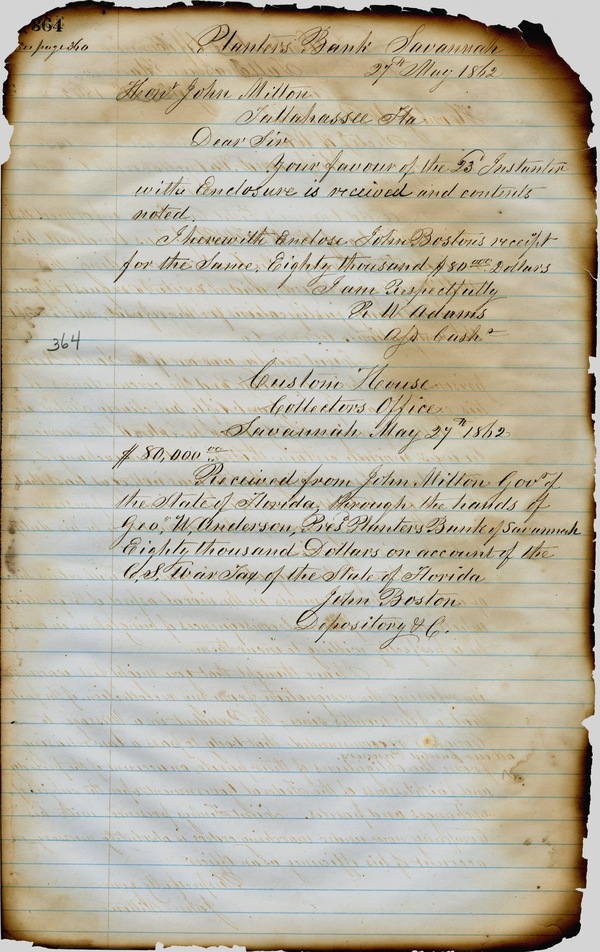 364
see page 360
Planters Bank Savannah
27th May 1862
Honr John Milton
Tallahassee Fla
Dear Sir
Your favour of the 23d Instanter
withe Enclosure is received and contents
noted.
I herewith Enclose John Bostons receipt
for the Same, Eighty thousand $80.000 Dollars
I am Respectfully
R W Adams
Asst Cashr
364
Custom House
Collectors Office
Savannah May 27th 1862
$80,000 00
Received from John Milton Govr of
the State of Florida through the hands of
Geo. W. Anderson, Prest Planters Bank of Savannah
Eighty thousand Dollars on account of the
C.S. War Tax of the State of Florida
John Boston
Depository & C.